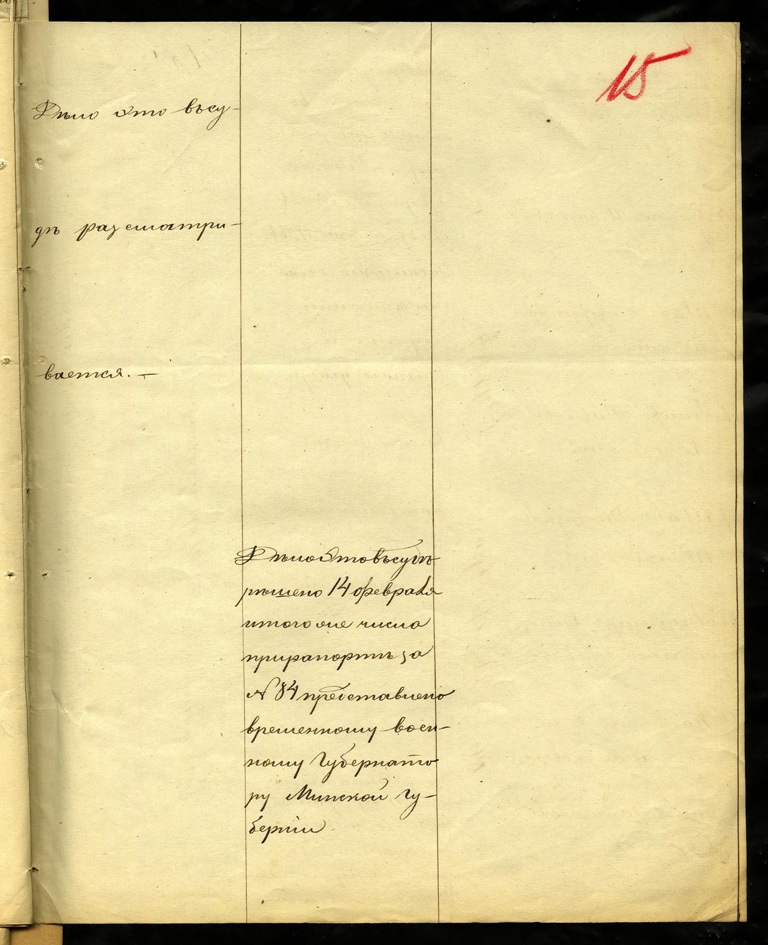 15
Дѣло это въ су-
дѣ разсматри-
вается. —
Дѣло это въ судѣ
рѣшено 14 февраля
и того же числа
при рапортѣ за
№ 84 представлено
временному воен-
ному Губернато
ру Минской Гу-
берніи